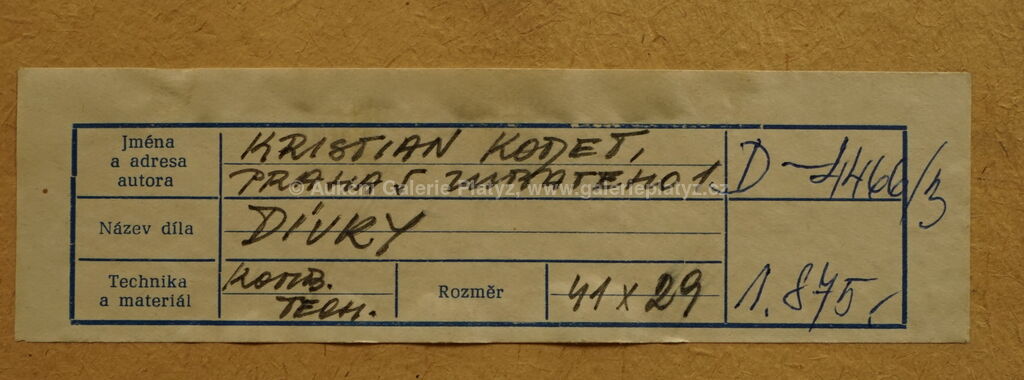 Jména
a adresa
autora
KRISTIAN KODET,
PRAHA 5 1
© Aukční Galerie Platýz, www.galerieplatyz.cz
D-4466/3
Název díla
DÍVKY
Technika
a materiál
KOMB.
TECH.
Rozměr
41 x 29
1.875,-